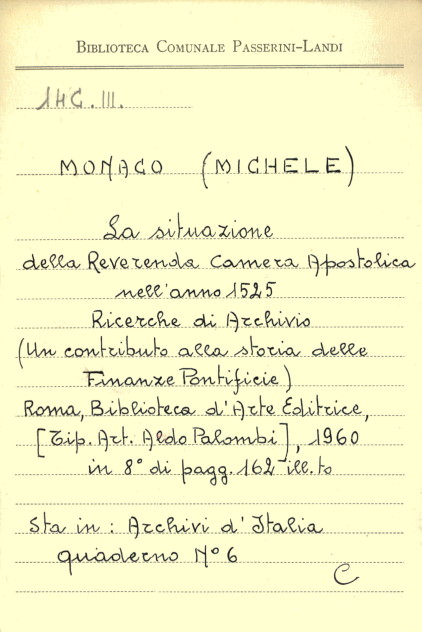 BIBLIOTECA COMUNALE PASSERINI-LANDI
14C.III.
MONACO (MICHELE)
La situazione
della Reverenda Camera Apostolica
nell'anno 1525
Ricerche di Archivio
(Un contributo alla storia delle
Finanze Pontificie)
Roma, Biblioteca d'Arte Editrice,
[Tip. Art. Aldo Palombi], 1960
in 8° di pagg. 162 ill.to
Sta in: Archivi d'Italia
quaderno N° 6
C